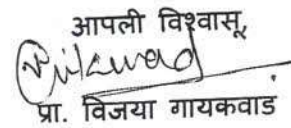 आपली विश्वासू,
प्रा. विजया गायकवाड